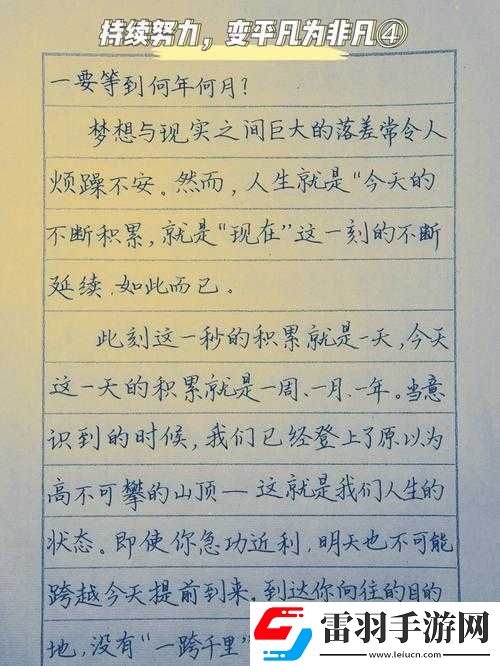 持续努力，变平凡为非凡④
一要等到何年何月？
梦想与现实之间巨大的落差常令人
烦躁不安。然而，人生就是“今天的
不断积累，就是“现在”这一刻的不断
延续，如此而已。
此刻这一秒的积累就是一天，今天
这一天的积累就是一周、一月、一年。当意
识到的时候，我们已经登上了原以为
高不可攀的山顶—这就是我们人生的
状态。即使你急功近利，明天也不可能
跨越今天提前到来。到达你向往的目的
地，没有“一跨千里”
雷羽手游网
www.leiucn.com